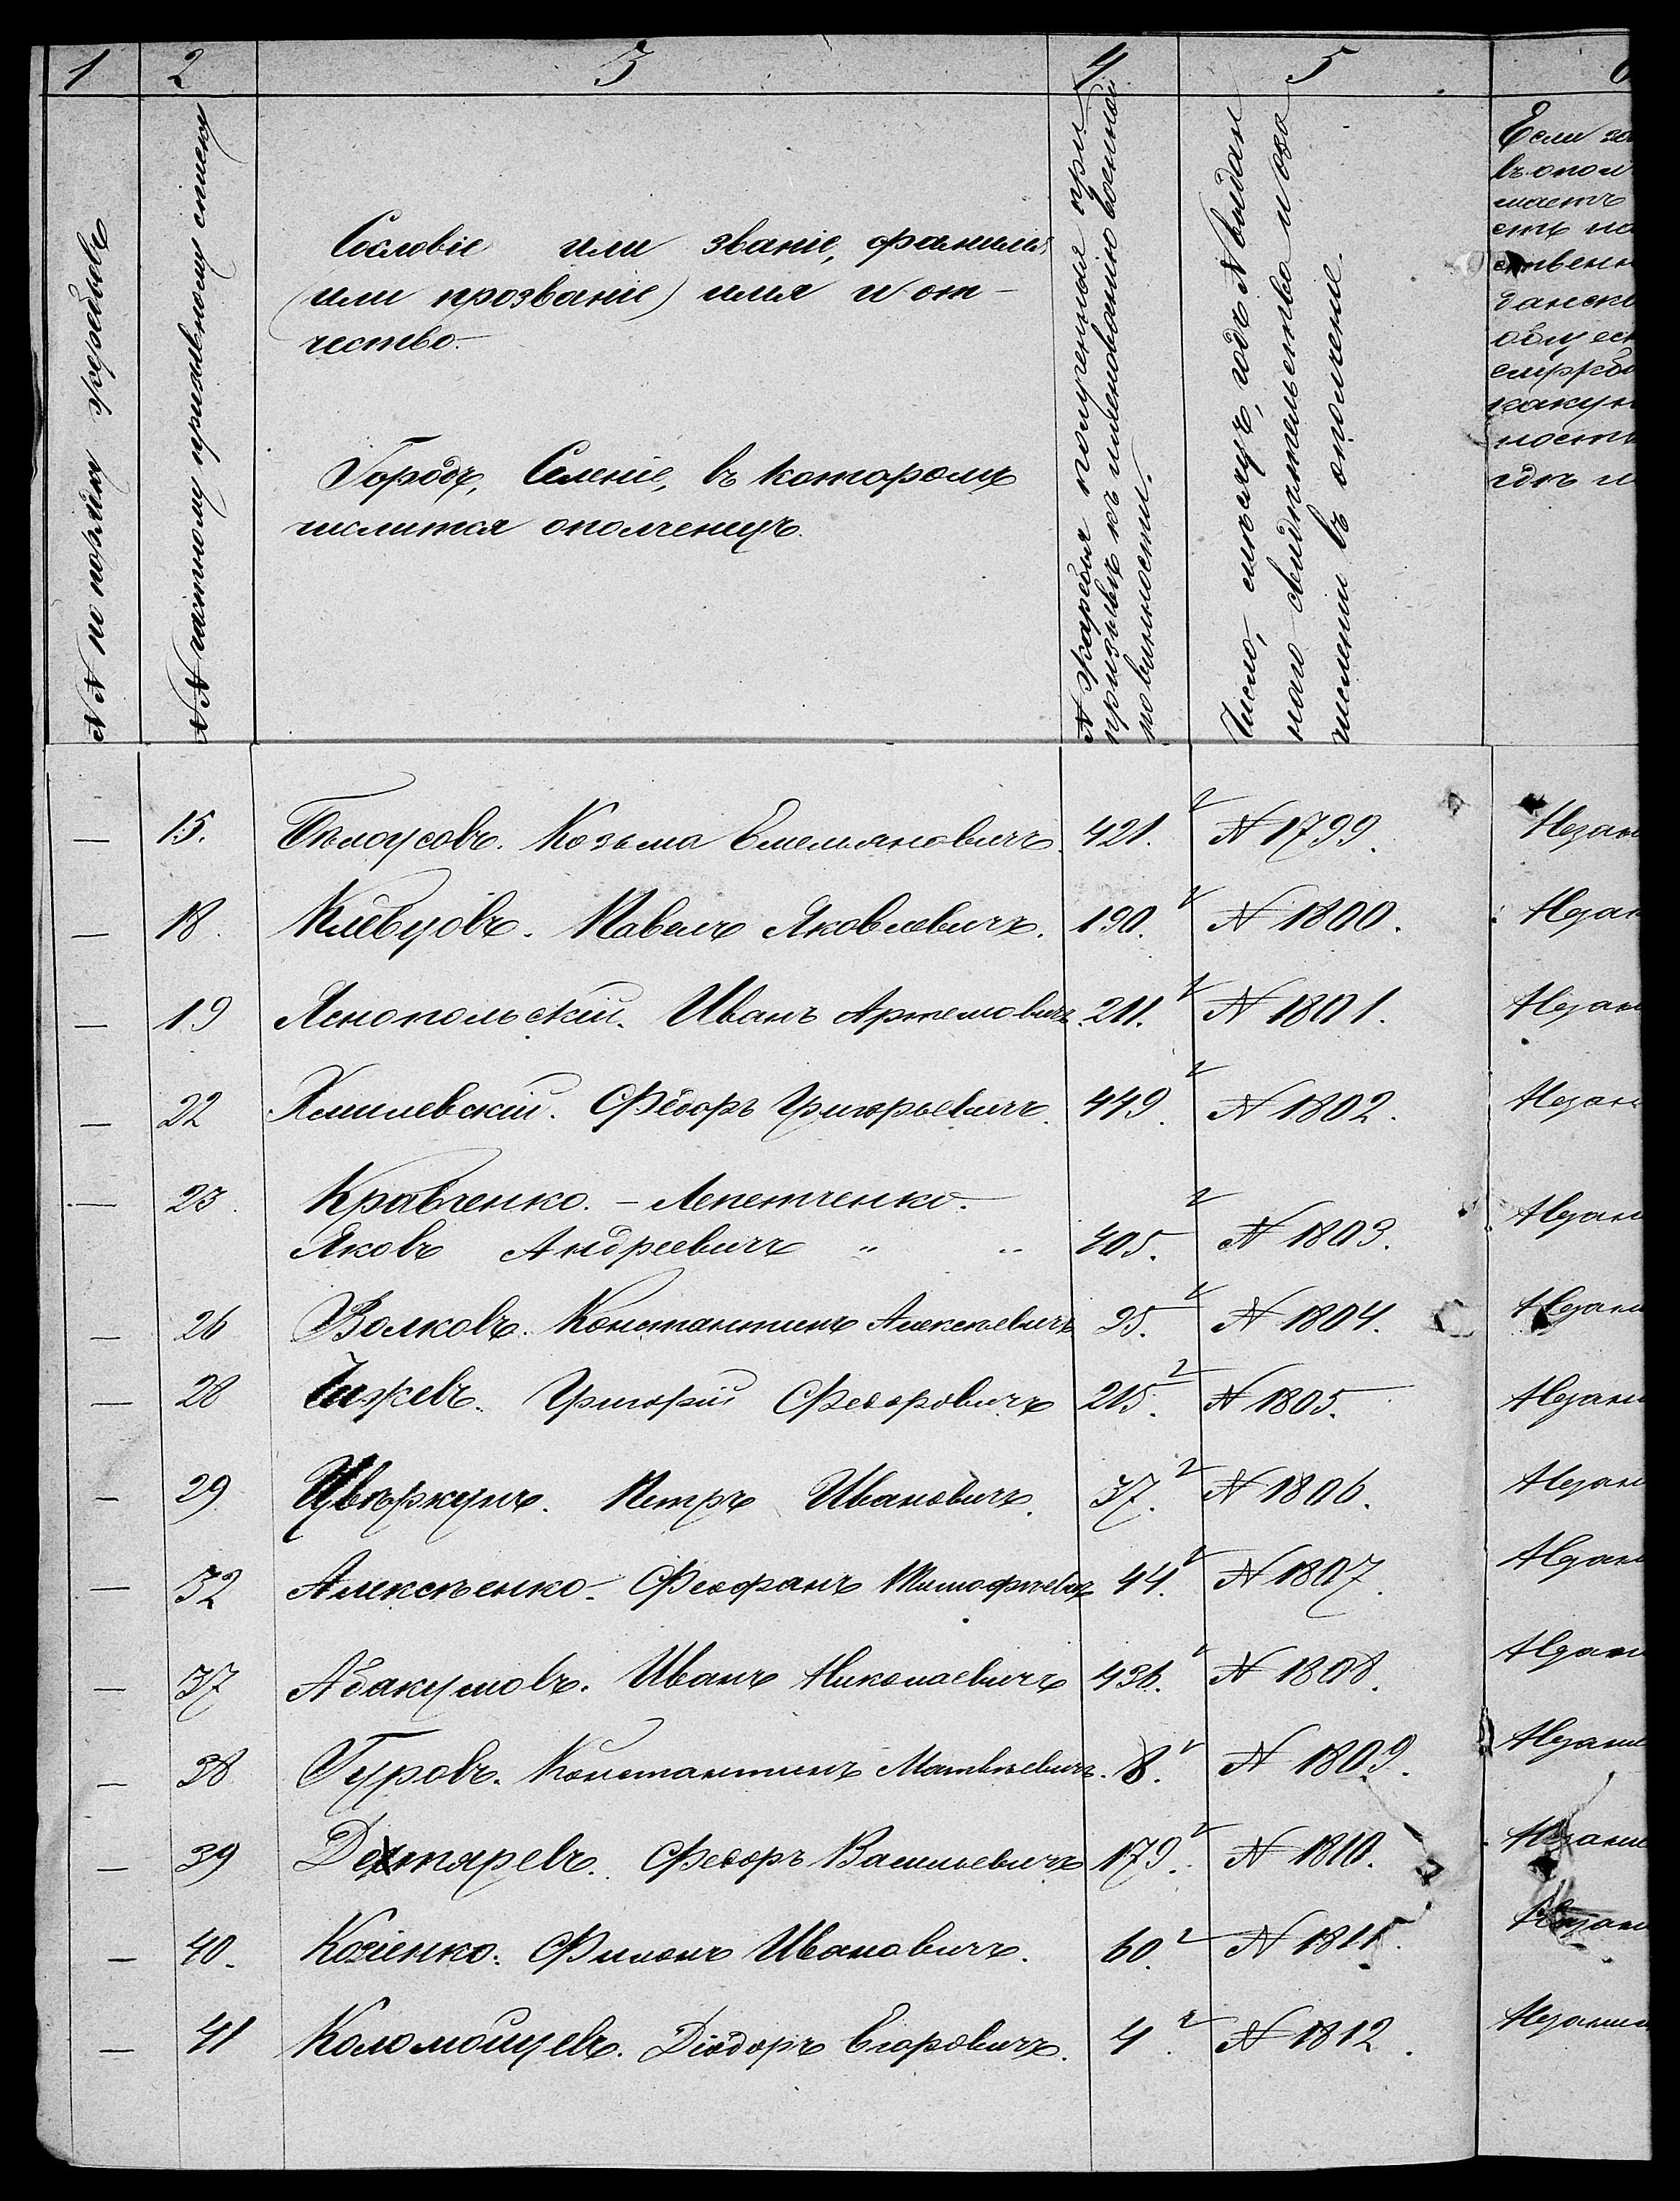 1 2 3 4 5 6
№№ по порядку жеребьевъ
№№ частному призывному списку
Сословіе или званіе, фамилія,
(или прозваніе) имя и от-
чество.
Городъ, Селеніе, въ которомъ
числится ополченецъ.
№ жеребья полученныя при
призывѣ къ исполненію воинской
повинности.
Число, мѣсяцъ, годъ № выдан
наго свидѣтельства о за
числении въ ополчение.
Если
— 15. Бѣлоусовъ. Козьма Емельяновичъ. 421. № 1799.
— 18. Клевцовъ. Павелъ Яковлевичъ. 190. № 1800.
— 19 Яснопольскій. Иванъ Артемовичъ. 211. № 1801.
— 22 Хмилевскій. Федоръ Григорьевичъ. 449. № 1802.
— 23. Кравченко. – Лепетченко.
Яковъ Андреевичъ " " 405. № 1803.
— 26 Волковъ. Константинъ Алексѣевичъ 25. № 1804.
— 28 Чижевъ. Григорій Федоровичъ 215. № 1805.
— 29. Цвѣркунъ. Петръ Ивановичъ. 37. № 1806.
— 32 Алексѣенко. Феофанъ Тимофѣевичъ 44. № 1807.
— 37 Абакумовъ. Иванъ Николаевичъ 436. № 1808.
— 38 Гуровъ. Константинъ Матвѣевичъ. 8. № 1809.
— 39 Дегтяревъ. Федоръ Васильевичъ 179. № 1810.
— 40. Косіенко. Филонъ Ивановичъ. 60. № 1811.
— 41 Коломойцевъ. Діодоръ Егоровичъ. 4. № 1812.